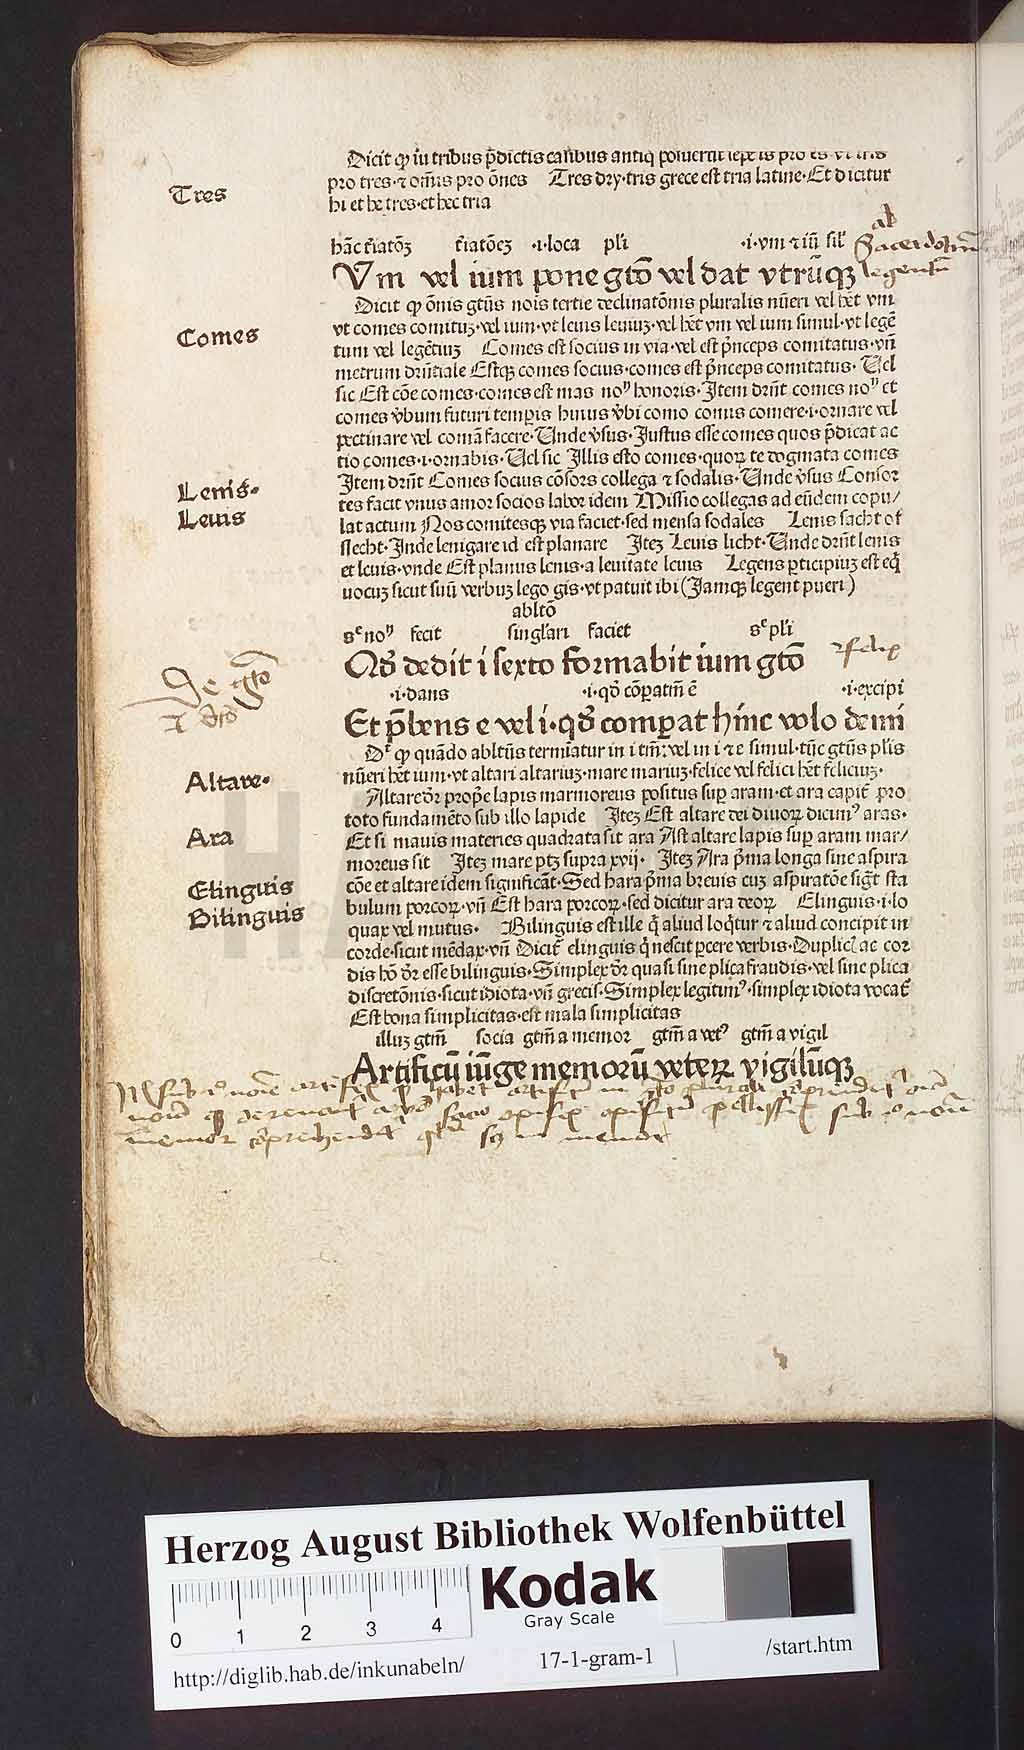 Dicit ꝙ in tribus p̄dictis casibus antiq̇ posuerūt
Tres
pro tres·⁊ omīs pro ōnes Tres dry·tris grece est tria latine·Et dicitur
hi et he tres·et hec tria
·i·loca pl'i ·i·vm ⁊ iū sil'
ab
Vm vel ium pone gtō vel dat vtrūqꝫ
Dicit ꝙ ōnis gtūs nois tertie declinatōnis pluralis nūeri vel hēt vm
Comes
vt comes comituꝫ·vel ium·vt leuis leuiuꝫ·vel hēt vm vel ium simul·vt legē
tum vel legētiuꝫ Comes est socius in via·vel est p̄nceps comitatus·vn̄
metrum drn̄tiale Estqꝫ comes socius·comes est p̄nceps comitatus· Uel
sic Est cōe comes·comes est mas noꝰ honoris·Item drn̄t comes noꝰ et
comes v̄bum futuri temꝑis huius v̄bi como comis comere·i·ornare vel
pectinare vel comā facere·Unde v̄sus·Justus esse comes quos p̄dicat ac
tio comes·i·ornabis·Uel sic Illis esto comes·quoꝝ te dogmata comes
Item drn̄t Comes socius cōsors collega ⁊ sodalis·Unde v̄sus Consor
Lenis·
tes facit vnus amor socios labor idem Missio collegas ad eūdem copu/
Leuis
lat actum Nos comitesqꝫ via faciet·sed mensa sodales Lenis sacht of
slecht·Inde lenigare id est planare Iteꝫ Leuis licht·Unde drn̄t lenis
et leuis·vnde Est planus lenis·a leuitate leuis Legens ꝑticipiuꝫ est eq̇
uocuꝫ sicut suū verbuꝫ lego gis·vt patuit ibi (Jamqꝫ legent pueri)
abltō
sᵉ noꝰ fecit singl'ari faciet sᵉ pl'i
Qd̄ dedit i sexto formabit ium gtō ⁊felix
De gtō
·i·dans ·i·qd̄ cōꝑatiū ē ·i·excipi
Et p̄bens e vel i·qd̄ comꝑat hinc volo demi
Dᵉ ꝙ quādo abltūs terminatur in i tm̄·vel in i ⁊ e simul·tūc gtūs pl'is
Altare·
nūeri hēt ium·vt altari altariuꝫ·mare mariuꝫ·felice vel felici hēt feliciuꝫ·
Altare dr̄ prop̄e lapis marmoreus positus suꝑ aram·et ara capit̄ pro
toto fundamēto sub illo lapide Iteꝫ Est altare dei diuoꝝ dicimꝰ aras·
Ara
Et si mauis materies quadrata sit ara Ast altare lapis suꝑ aram mar/
moreus sit Iteꝫ mare ptꝫ supra xvij· Iteꝫ Ara p̄ma longa sine aspira
Elinguis
cōe et altare idem significāt·Sed hara p̄ma breuis cuꝫ aspiratōe sign̄t sta
Bilinguis
bulum porcoꝝ·vn̄ Est hara porcoꝝ·sed dicitur ara deoꝝ Elinguis·i·lo
quax vel mutus· Bilinguis est ille q̇ aliud loq̇tur ⁊ aliud concipit in
corde·sicut mēdax·vn̄ Dicit̄ elinguis q̇ nescit ꝑcere verbis·Duplicꝭ ac cor
dis hō dr̄ esse bilinguis·Simplex dr̄ quasi sine plica fraudis·vel sine plica
discretōnis·sicut idiota·vn̄ grecis·Simplex legitimꝰ·simplex idiota vocat̄
Est bona simplicitas·est mala simplicitas
illuꝫ gtm̄ socia gtm̄ a memor gtm̄ a vetꝰ gtm̄ a vigil
Artificū iūge memorū veteꝝ vigilūqꝫ
Herzog August Bibliothek Wolfenbüttel
Kodak
Gray Scale
0 1 2 3 4
http://diglib.hab.de/inkunabeln/ 17-1-gram-1 /start.htm